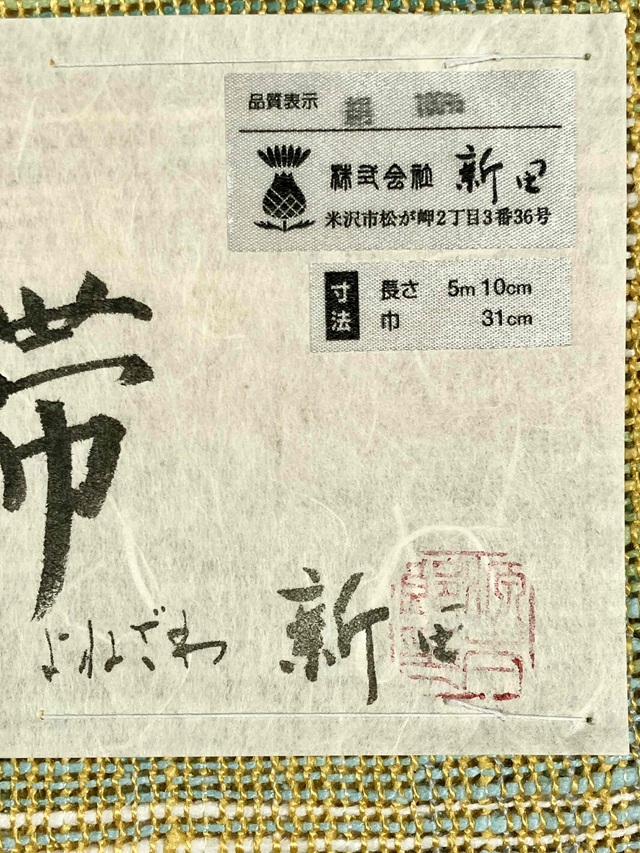 品質表示 絹 100%
株式会社 新田
米沢市松が岬2丁目3番36号
寸法
長さ 5m 10cm
巾 31cm
帯
よねざわ 新田